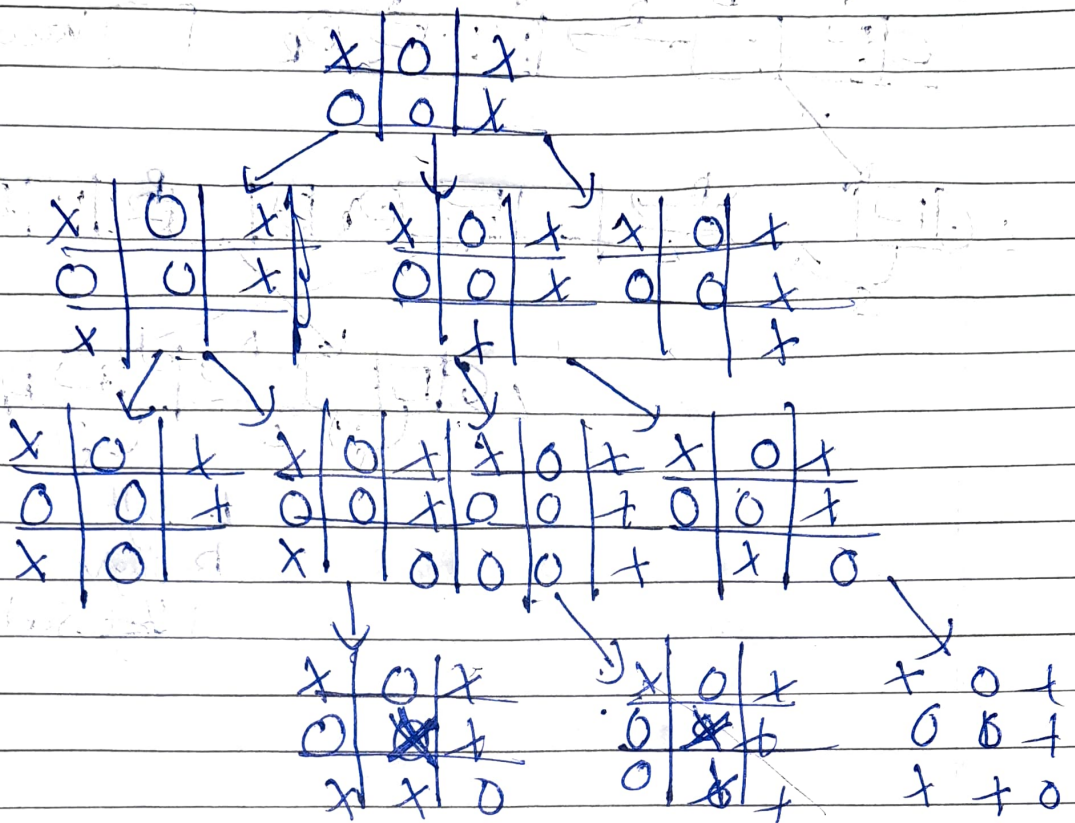 X O X
O O X
X O X X O X X O X
O O X O O X O O X
X X X
X O X X O X X O X X O X
O O X O O X O O X O O X
X O X O O O X X O
X O X X O X X O X
O X O O X
X X O O X X X O